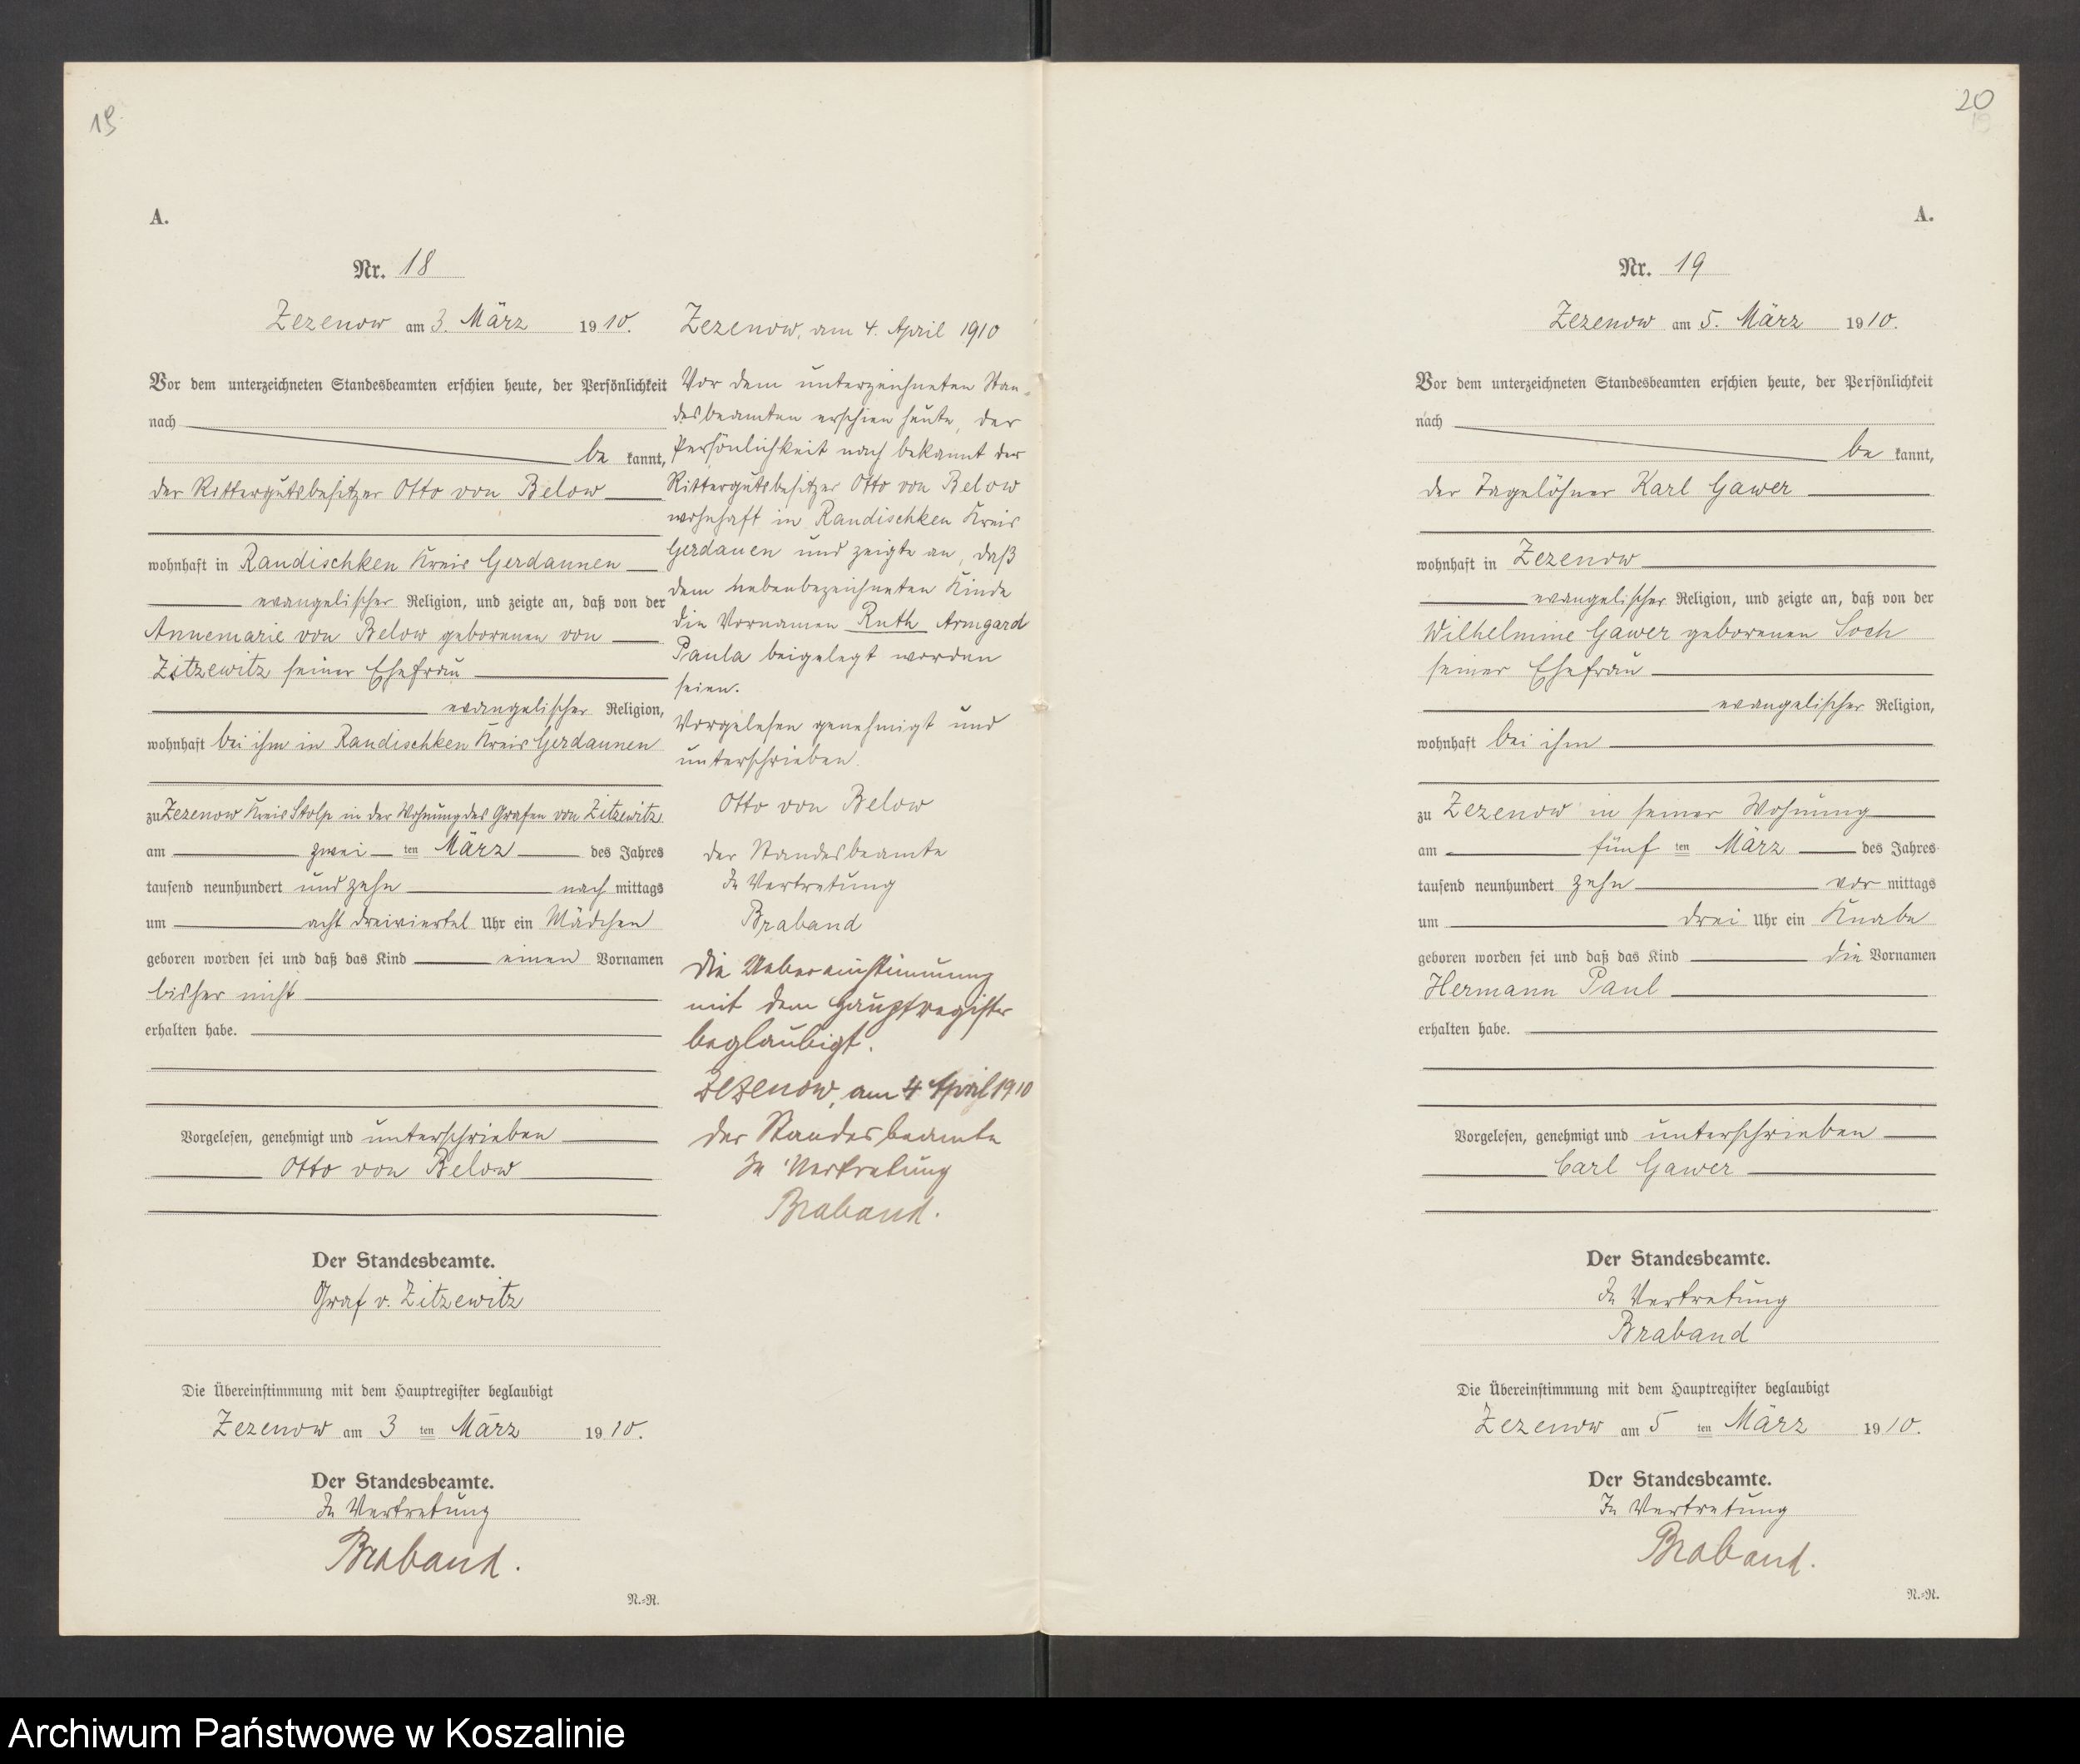 19
A.
Nr. 18
Zezenow am 3. März 1910.
Vor dem unterzeichneten Standesbeamten erschien heute, der Persönlichkeit
nach
be kannt,
der Rittergutsbesitzer Otto von Below
wohnhaft in Randischken Kreis Gerdaunen
evangelischer Religion, und zeigte an, daß von der
Annemarie von Below geborenen von
Zitzewitz seiner Ehefrau
evangelischer Religion,
wohnhaft bei ihm in Randischken Kreis Gerdaunen
zu Zezenow Kreis Stolp in der Wohnung des Grafen von Zitzewitz
am zwei ten März des Jahres
tausend neunhundert und zehn nach mittags
um acht dreiviertel Uhr ein Mädchen
geboren worden sei und daß das Kind einen Vornamen
bisher nicht
erhalten habe.
Vorgelesen, genehmigt und unterschrieben
Otto von Below
Der Standesbeamte.
Graf v. Zitzewitz
Die Übereinstimmung mit dem Hauptregister beglaubigt
Zezenow am 3 ten März 1910.
Der Standesbeamte.
In Vertretung
Braband.
N.-R.
Zezenow, am 4. April 1910
Vor dem unterzeichneten Stan-
desbeamten erschien heute, der
Persönlichkeit nach bekannt der
Rittergutsbesitzer Otto von Below
wohnhaft in Randischken Kreis
Gerdauen und zeigte an, daß
dem nebenbezeichneten Kinde
die Vornamen Ruth Armgard
Paula beigelegt worden
seien.
Vorgelesen genehmigt und
unterschrieben.
Otto von Below
der Standesbeamte
In Vertretung
Braband
Die Uebereinstimmung
mit dem Hauptregister
beglaubigt.
Zezenow, am 4 April 1910
der Standesbeamte
In Vertretung
Braband.
20
19
A.
Nr. 19
Zezenow am 5. März 1910.
Vor dem unterzeichneten Standesbeamten erschien heute, der Persönlichkeit
nach
be kannt,
der Tagelöhner Karl Gawer
wohnhaft in Zezenow
evangelischer Religion, und zeigte an, daß von der
Wilhelmine Gawer geborenen Soch
seiner Ehefrau
evangelischer Religion,
wohnhaft bei ihm
zu Zezenow in seiner Wohnung
am fünf ten März des Jahres
tausend neunhundert zehn vor mittags
um drei Uhr ein Knabe
geboren worden sei und daß das Kind die Vornamen
Hermann Paul
erhalten habe.
Vorgelesen, genehmigt und unterschrieben
Carl Gawer
Der Standesbeamte.
In Vertretung
Braband
Die Übereinstimmung mit dem Hauptregister beglaubigt
Zezenow am 5 ten März 1910.
Der Standesbeamte.
In Vertretung
Braband.
N.-R.
Archiwum Państwowe w Koszalinie